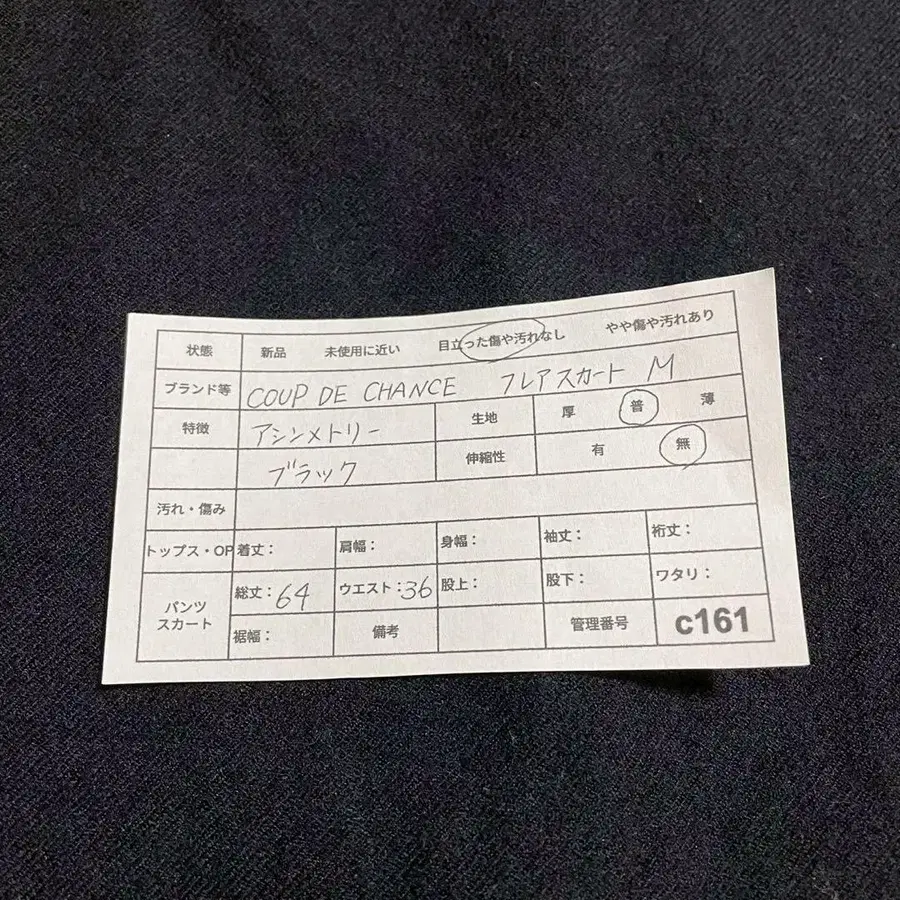 状態 新品 未使用に近い 目立った傷や汚れなし やや傷や汚れあり
ブランド等 COUP DE CHANCE フレアスカート M
特徴 アシンメトリー 生地 厚 普 薄
ブラック 伸縮性 有 無
汚れ・傷み
トップス・OP 着丈： 肩幅： 身幅： 袖丈： 裄丈：
パンツ スカート 総丈：64 ウエスト：36 股上： 股下： ワタリ：
裾幅： 備考 管理番号 c161